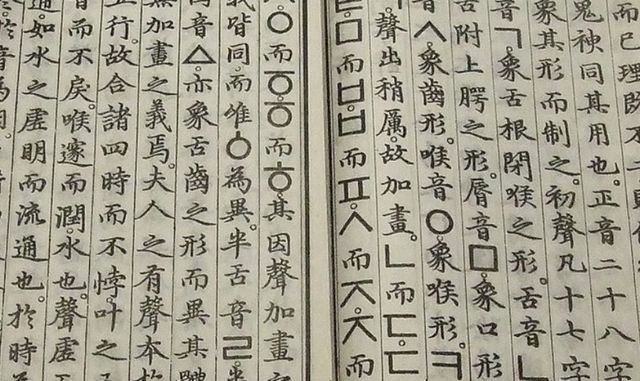 而已理既不二
鬼神同其用也。正音二十八字
象其形而制之。初聲凡十七字
音ㄱ。象舌根閉喉之形。舌音ㄴ
舌附上腭之形。脣音ㅁ。象口形
音ㅅ。象齒形。喉音ㅇ。象喉形。ㅋ
聲出稍厲。故加畫。ㄴ而ㄷ。ㄷ
ㅁ而ㅂ。ㅂ而ㅍ。ㅅ而ㅈ。ㅈ而
ㅇ而ㆆ。ㆆ而ㅎ。其因聲加畫
皆同。而唯ㆁ為異。半舌音ㄹ。半
音ㅿ。亦象舌齒之形而異其體
無加畫之義焉。夫人之有聲本於
五行。故合諸四時而不悖。叶之五
音而不戾。喉邃而潤。水也。聲虛
通。如水之虛明而流通也。於時
於音為